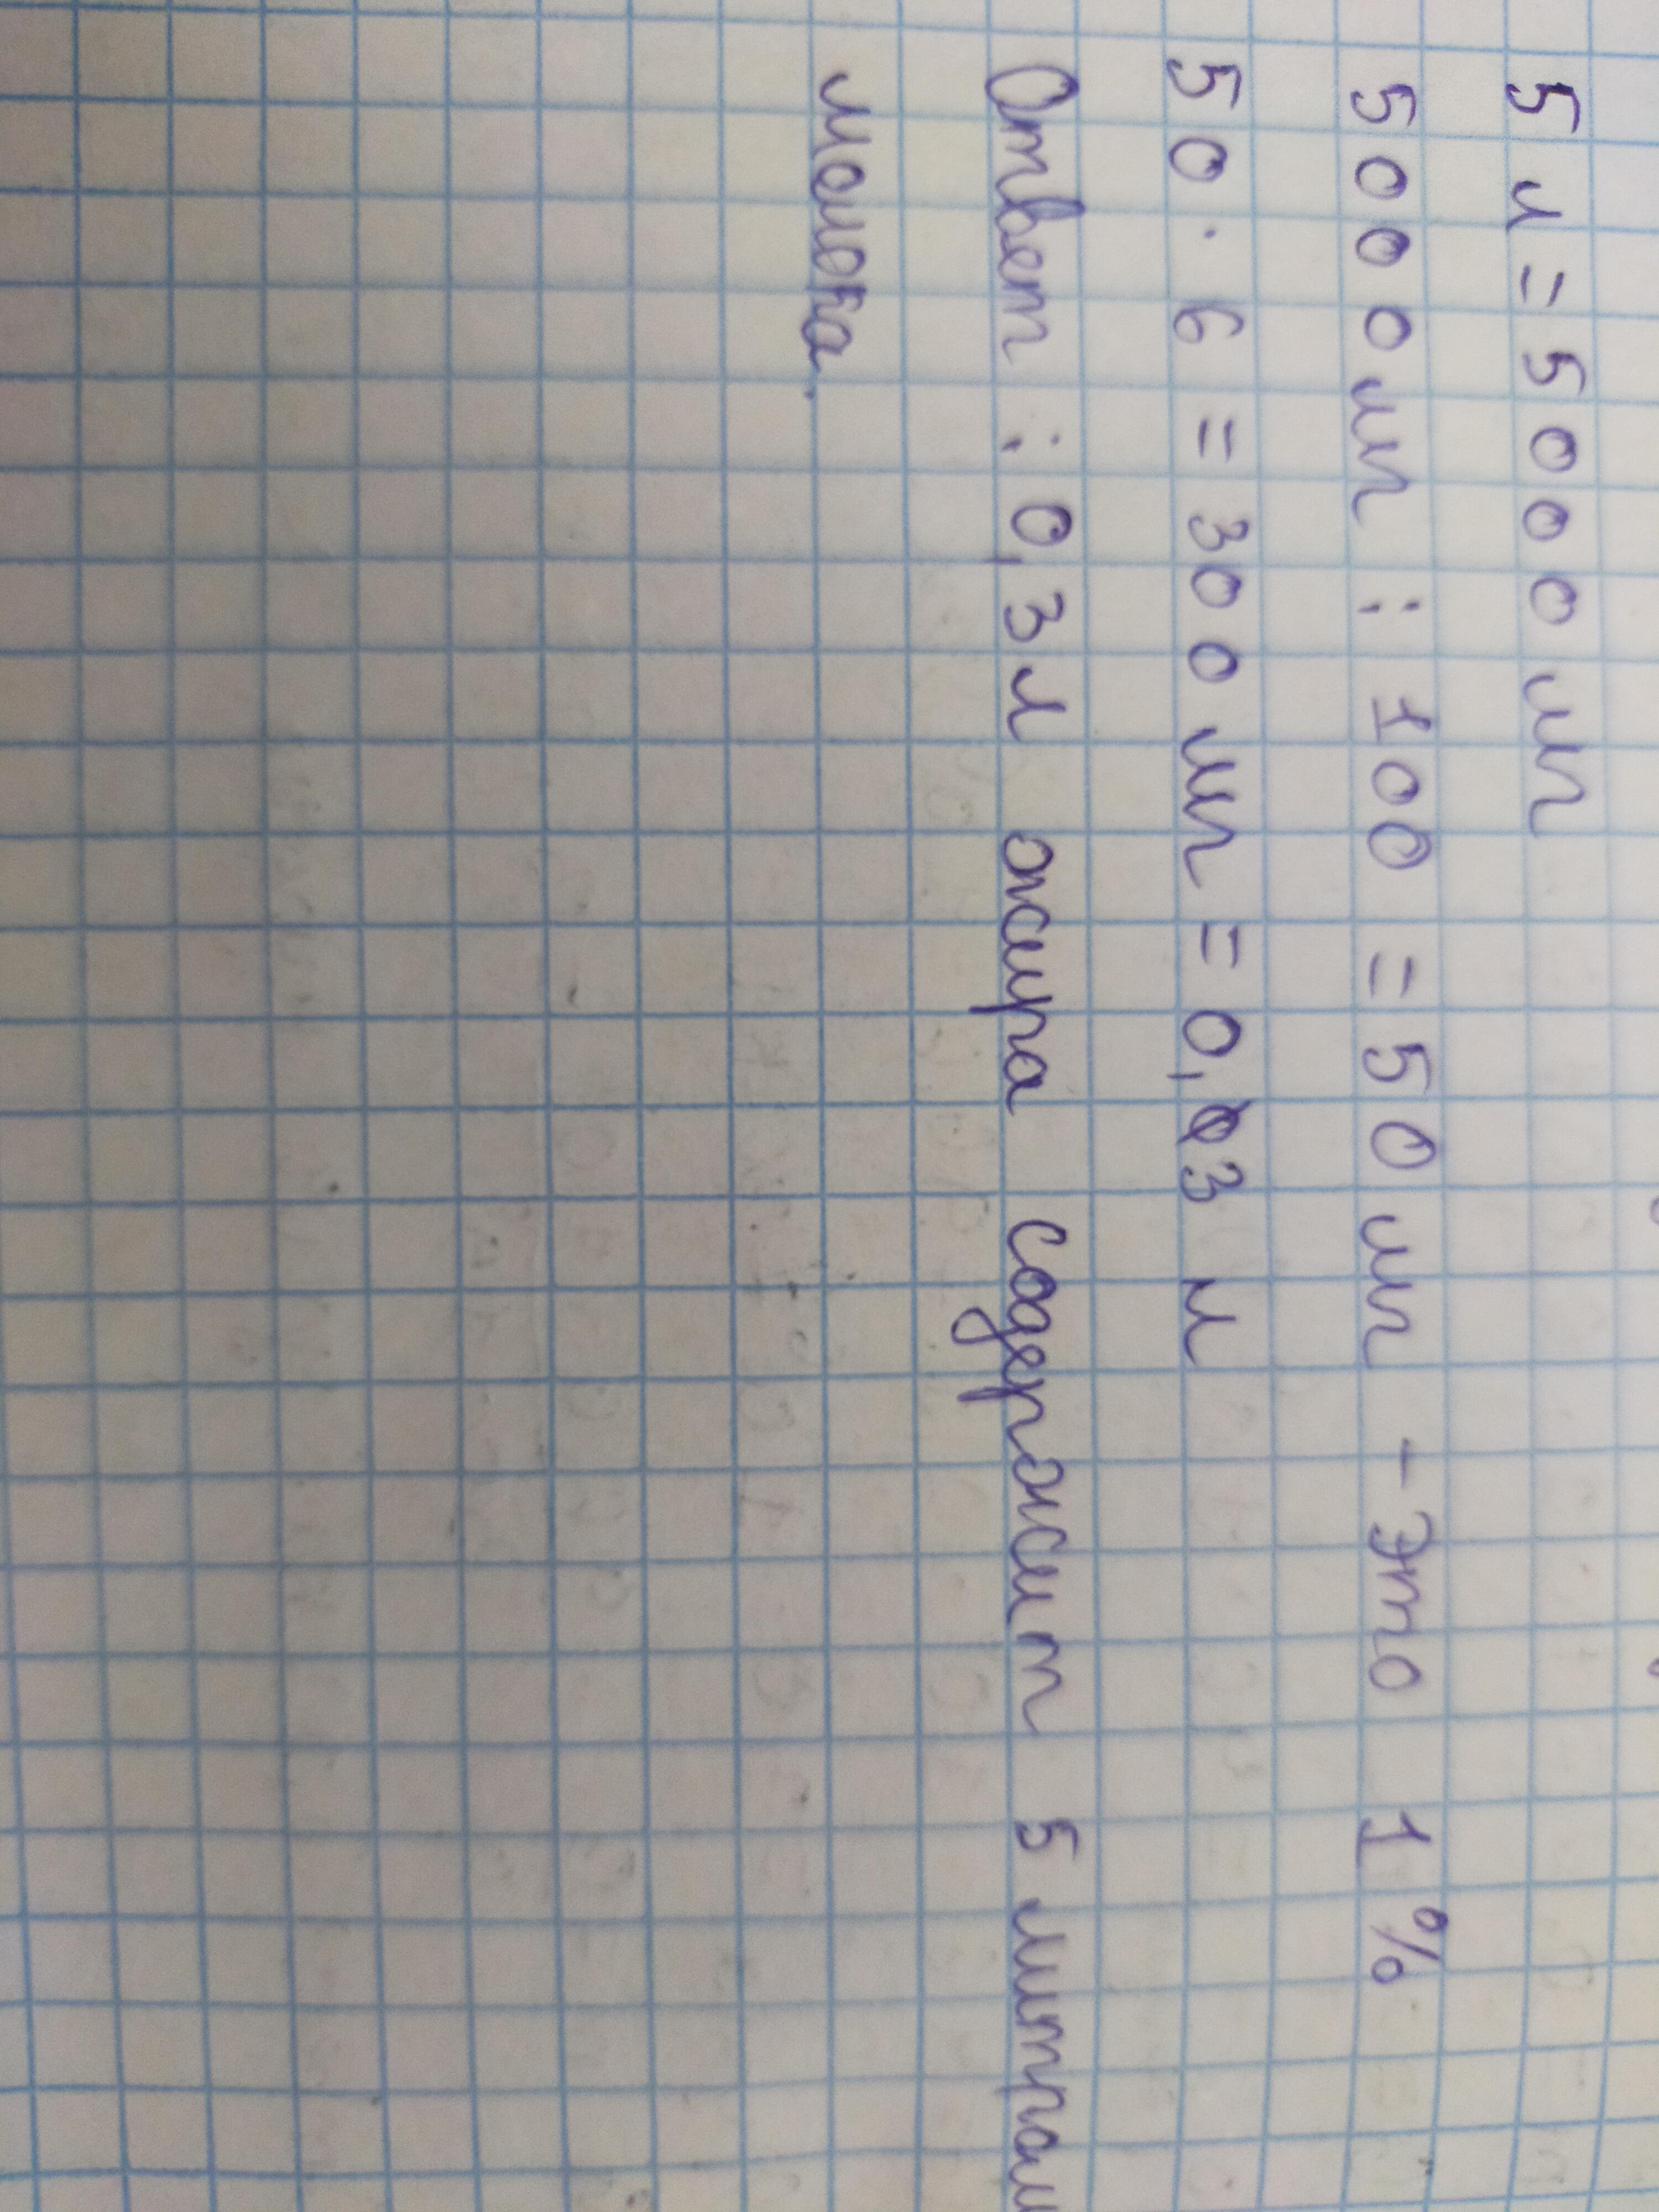 5 л = 5000 мл
5000 мл : 100 = 50 мл – Это 1%
50 · 6 = 300 мл = 0,3 л
Ответ : 0,3 л жира содержит 5 литрам
молока.